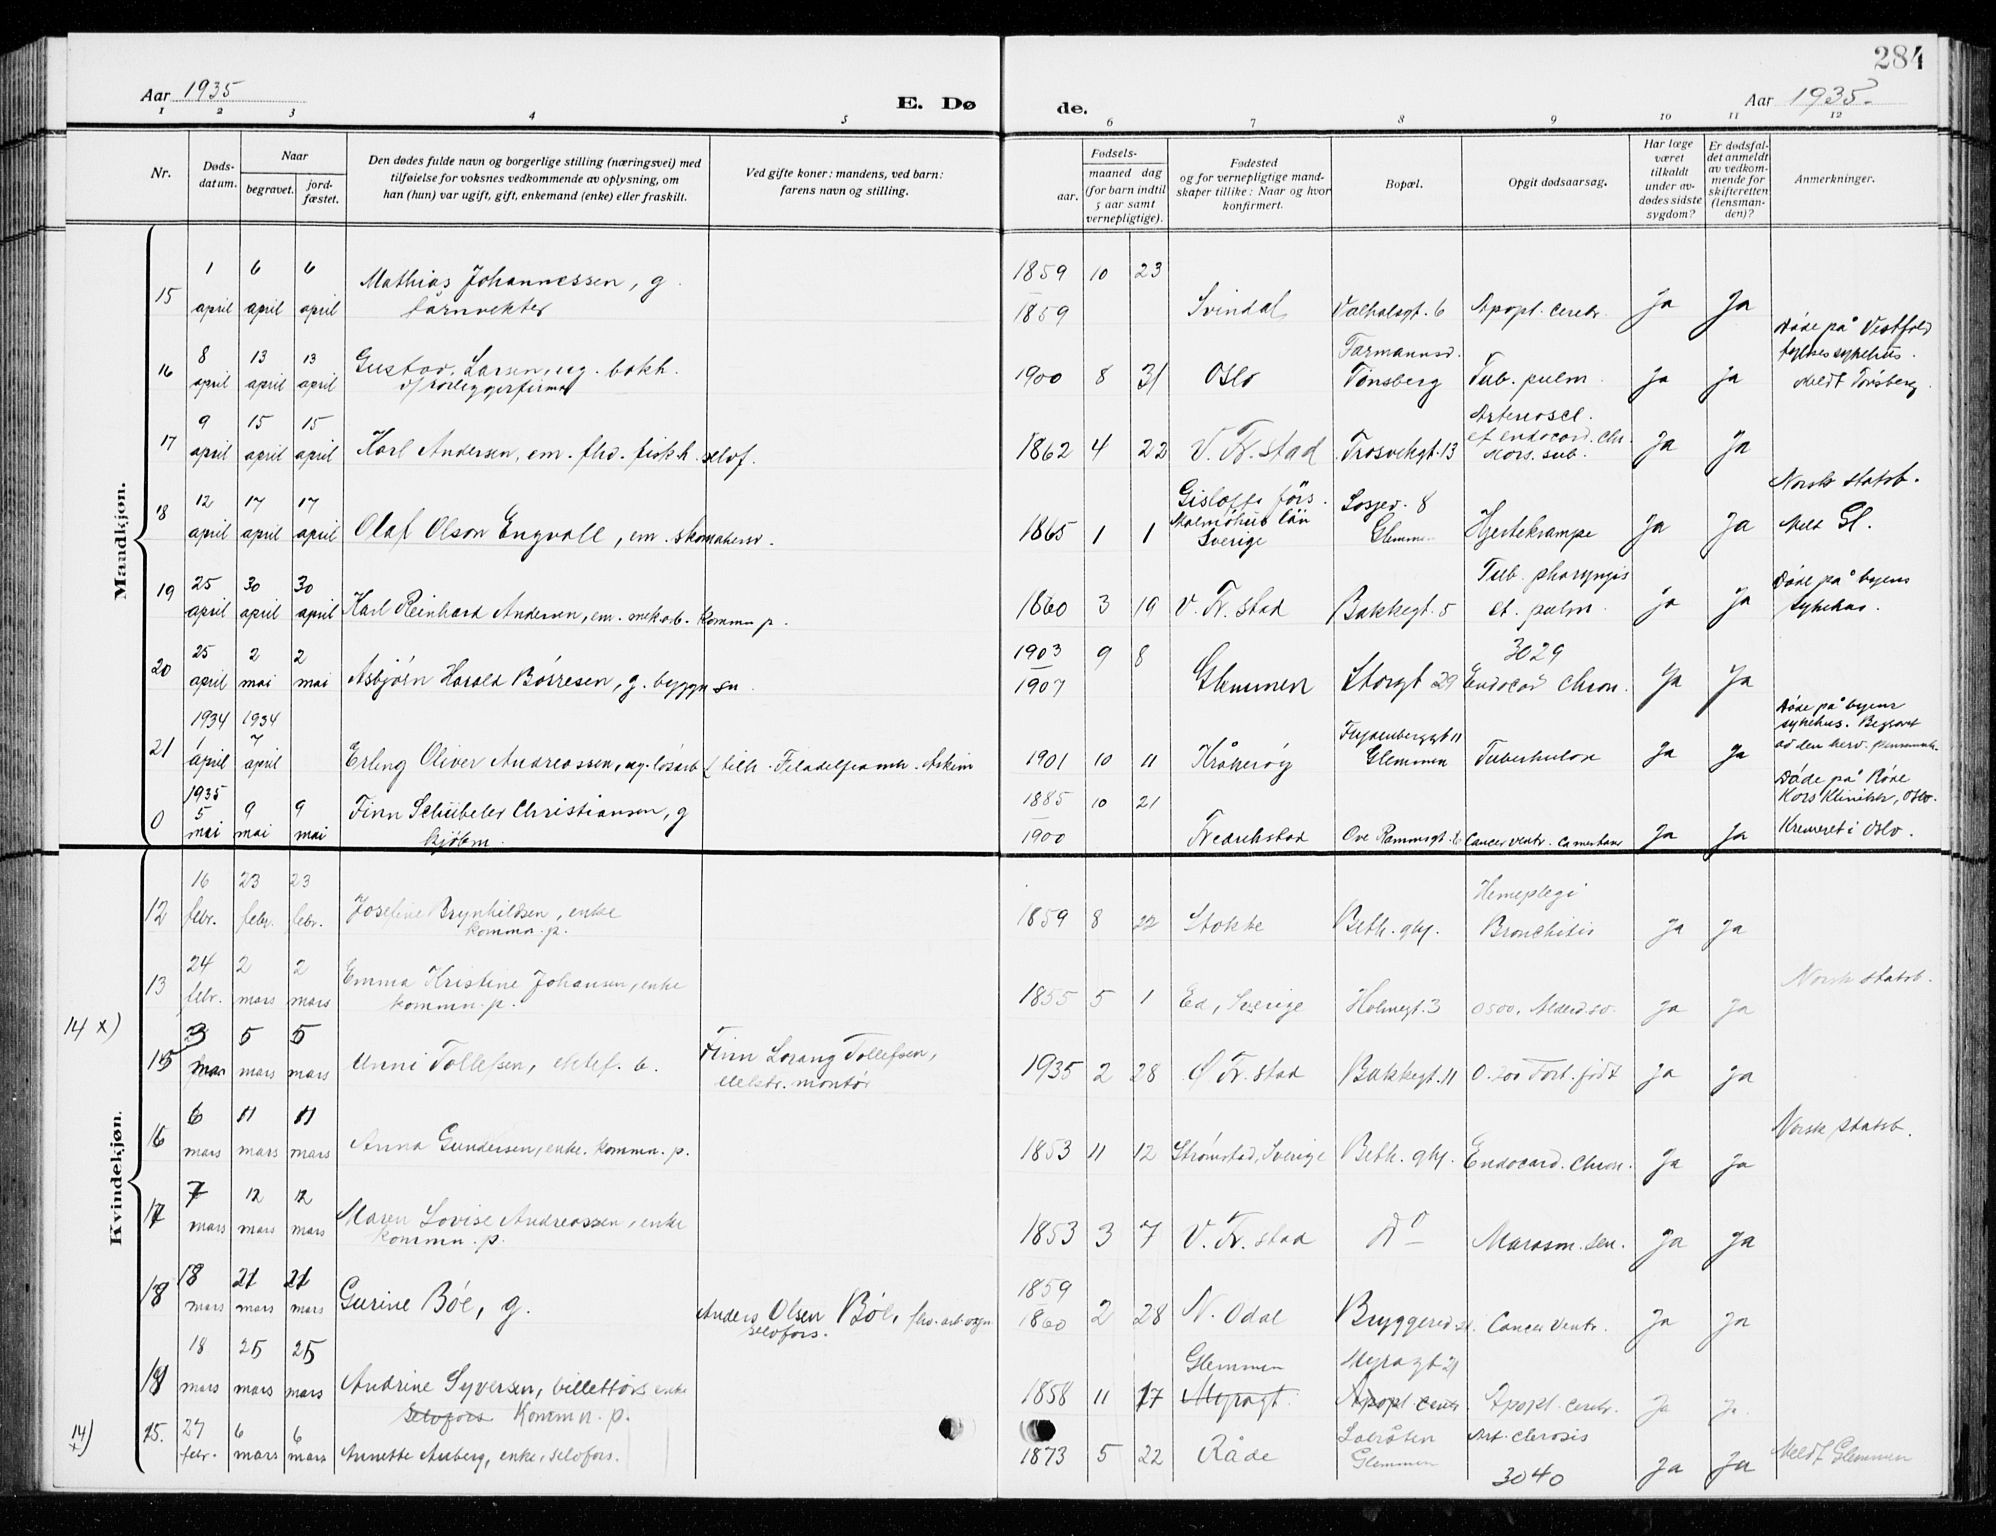 284
Aar 1935
E. Dø
de.
Aar 1935.
1 2 3 4 5 6 7 8 9 10 11 12
Nr.
Dødsdatum.
Naar
begravet.
jordfæstet.
Den dødes fulde navn og borgerlige stilling (næringsvei) med
tilføielse for voksnes vedkommende av oplysning, om
han (hun) var ugift, gift, enkemand (enke) eller fraskilt.
Ved gifte koner: mandens, ved barn:
farens navn og stilling.
Fødsels-
aar.
maaned dag
(for barn indtil
5 aar samt
vernepligtige).
Fødested
og for vernepligtige mandskaper tillike: Naar og hvor
konfirmert.
Bopæl.
Opgit dødsaarsag.
Har læge
været
tilkaldt
under avdødes sidste
sygdom?
Er dødsfaldet anmeldt
av vedkommende for
skifteretten
(lensmanden)?
Anmerkninger.
Mandkjøn.
15 1 april 6 april 6 april Mathias Johannessen, g. tårnvekter 1859 10 23 1859 Svindal Valhalsgt. 6 Apopl. cerebr. Ja Ja
16 8 april 13 april 13 april Gustav Larsen, ug. bokh. i rørleggerfirma 1900 8 31 Oslo Farmannsv. Tønsberg Tub. pulm. Ja Ja Døde på Vestfold fylkessykehus. Meldt Tønsberg.
17 9 april 15 april 15 april Karl Andersen, em. fhv. fiskh. selvf. 1862 4 22 V. Fr.stad Trosvikgt. 13 Arterioscl. et endocard. chr. Mors. sub. Ja Ja
18 12 april 17 april 17 april Olaf Olson Engvall, em. skomakersv. 1865 1 1 Gisloffs förs. Malmöhus län Sverige 8 Glemmen Hjertekrampe Ja Ja Norsk statsb. Meldt Gl.
19 25 april 30 april 30 april Karl Reinhard Andersen, em. mek.arb. kommn p. 1860 3 19 V. Fr.stad Bakkegt. 5 Tub. pharyngis et. pulm. Ja Ja Døde på byens sykehus.
20 25 april 2 mai 2 mai Asbjørn Harald Børresen, g. byggm.sn. 1903 9 8 1907 Glemmen Storgt 29 3029 Endocard chron. Ja Ja
21 1934 1 april 1934 7 april Erling Oliver Andreassen, ug. løsarb. tilh. Filadelfiamh. Askim 1901 10 11 Kråkerøy 11 Glemmen Tuberkulose Ja Ja Døde på byens sykehus. Begravet av den herv. pinsemenh.
0 1935 5 mai 9 mai 9 mai Finn Schübeler Christiansen, g kjøbm. 1885 10 21 1900 Fredrikstad Ove Rammsgt. Cancer ventr. Ja Ja Døde på Røde Kors Klinikk, Oslo. Kremeret i Oslo.
Kvindekjøn.
12 16 febr. 23 febr. 23 febr. Josefine Brynhildsen, enke kommn. p. 1859 8 22 Stokke Beth. ghj. Hemeplegi Bronchitis Ja Ja
13 24 febr. 2 mars 2 mars Emma Kristine Johansen, enke kommn. p. 1855 5 1 Ed, Sverige Holmegt. 3 0500. Alderd.sv. Ja Ja Norsk statsb.
14 x)
15 3 mars 5 mars 5 mars Unni Tollefsen, ektef. b. Finn Lorang Tollefsen, elektr. montør 1935 2 28 Ø Fr.stad Bakkegt. 11 0.200 Fort. født Ja Ja
16 6 mars 11 mars 11 mars Anna Gundersen, enke. kommn. p. 1853 11 12 Strømstad, Sverige Beth. ghj. Endocard. chron. Ja Ja Norsk statsb.
17 7 mars 12 mars 12 mars Maren Lovise Andreassen, enke kommn. p. 1853 3 7 V. Fr.stad do Marasm. sen. Ja Ja
18 18 mars 21 mars 21 mars Gurine Bøe, g. Anders Olsen Bøe, fhv. arb. selvfors. 1859 1860 2 28 N. Odal Bryggeriv. Cancer ventr. Ja Ja
19 18 mars 25 mars 25 mars Andrine Syversen, billettørs enke selvfors Kommn. p. 1858 11 17 Glemmen Myragt. Myragt 21 Apopl cerebr. Apopl. cerebr. Ja Ja
14 x) 15. 27 febr. 6 mars 6 mars Annette Auberg, enke, selvfors. 1873 5 22 Råde Labråten Glemmen Art. clerosis 3040 Ja Ja Meldt Glemmen